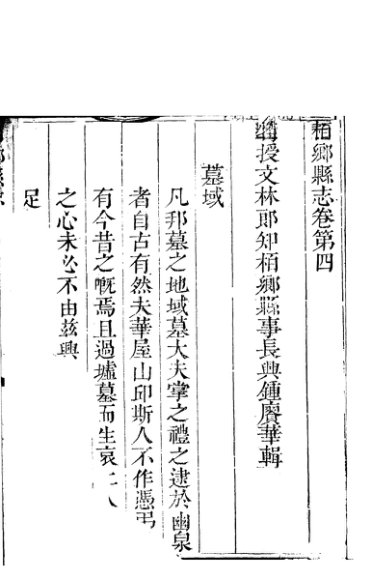 柏鄉縣志卷第四
授文林郎知柏鄉縣事長興鍾賡華輯
墓域
凡邦墓之地域墓大夫掌之禮之逮於幽泉
者自古有然夫華屋山邱斯人不作憑弔
有今昔之慨焉且過墟墓而生哀
之心未必不由兹興
足